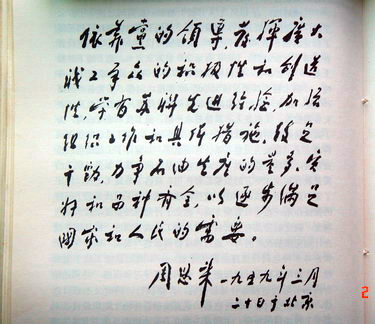 依靠黨的領導,发揮廣大
职工羣众的积极性和创造
性,学習苏联先進经验,加强
组织工作和具体措施,鼓足
干勁,力争石油生產的量多、
好和品种齐全,以逐步满足
國家和人民的需要。
周恩来 一九五九年三月
二十日于北京
2